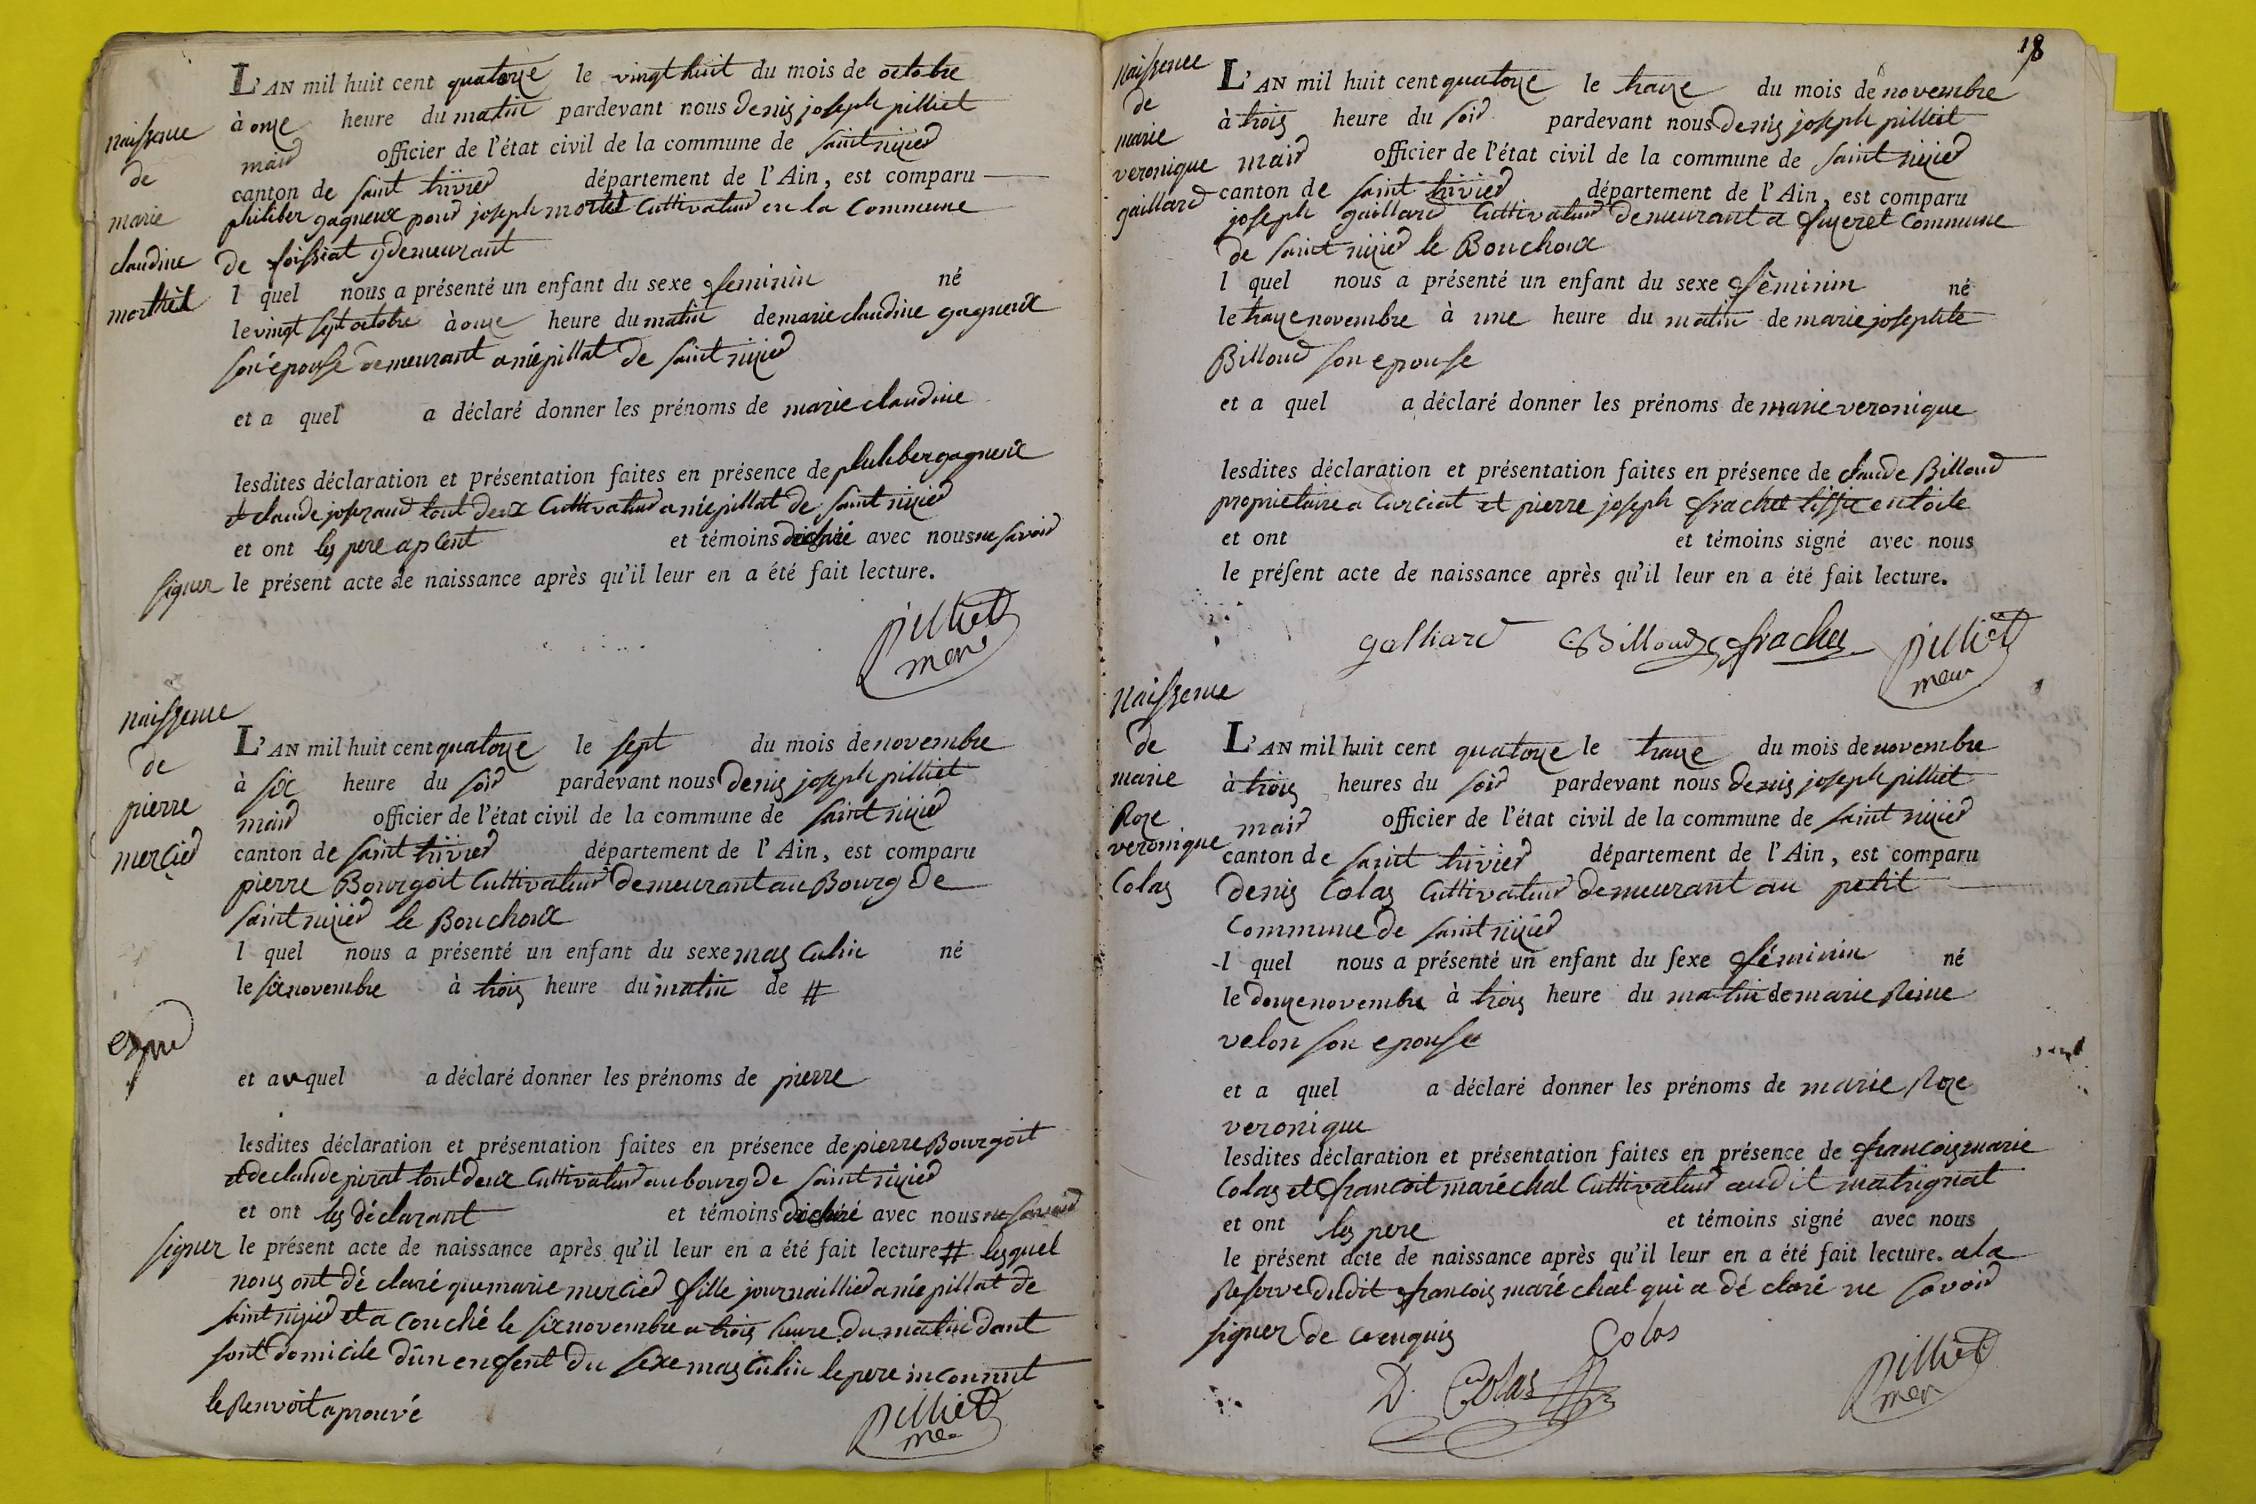 naissence
de
marie
claudine
morthèl
L'AN mil huit cent quatorze le vingt huit du mois de octobre
à onze heure du matin pardevant nous denis joseph pilliet
mair officier de l'état civil de la commune de saint nizier
canton de saint trivier département de l'Ain, est comparu
philiber gagneux pour joseph mortel Cultivateur en la Commune
de foissiat y demeurant
l quel nous a présenté un enfant du sexe feminin né
le vingt sept octobre à onze heure du matin de marie claudine gagneux
son épouse demeurant a népillat de saint nizier
et a quel a déclaré donner les prénoms de marie claudine
lesdites déclaration et présentation faites en présence de philiber gagneux
et claude josrand tout deux Cultivateur a népillat de saint nizier
et ont les pere apcent et témoins déclaré avec nous ne savoir
signer le présent acte de naissance après qu'il leur en a été fait lecture.
pilliet
mer
naissence
de
pierre
mercier
L'AN mil huit cent quatorze le sept du mois de novembre
à six heure du soir pardevant nous denis joseph pilliet
mair officier de l'état civil de la commune de saint nizier
canton de saint trivier département de l'Ain, est comparu
pierre Bourgoit Cultivateur demeurant au Bourg de
saint nizier le Bouchoux
l quel nous a présenté un enfant du sexe mas culin né
le six novembre à trois heure du matin de #
et auquel a déclaré donner les prénoms de pierre
lesdites déclaration et présentation faites en présence de pierre Bourgoit
et de claude pirat tout deux Cultivateur au bourg de saint nizier
et ont les déclarant et témoins déclaré avec nous ne savoir
signer le présent acte de naissance après qu'il leur en a été fait lecture # lesquel
nous ont dé claré que marie mercier fille journaillier a népillat de
saint nizier et a couché le six novembre a trois heure du matin dant
sont domicile d'un enfent du sexe mas culin le pere inconnut
le Renvoit aprouvé
pilliet
mer
18
naissence
de
marie
veronique
gaillard
L'AN mil huit cent quatorze le traize du mois de novembre
à trois heure du soir pardevant nous denis joseph pilliet
mair officier de l'état civil de la commune de saint nizier
canton de saint trivier département de l'Ain, est comparu
joseph gaillard Cultivateur demeurant a fuzeret Commune
de saint nizier le Bouchoux
l quel nous a présenté un enfant du sexe féminin né
le traize novembre à une heure du matin de marie josephte
Billoud son epouse
et a quel a déclaré donner les prénoms de marie veronique
lesdites déclaration et présentation faites en présence de claude Billoud
proprietaire a Curciat et pierre joseph frachet tissie en toile
et ont et témoins signé avec nous
le présent acte de naissance après qu'il leur en a été fait lecture.
galliard C Billoud frachet pilliet
mer
naissence
de
marie
Roze
veronique
Colas
L'AN mil huit cent quatorze le traize du mois de novembre
à trois heures du soir pardevant nous denis joseph pilliet
mair officier de l'état civil de la commune de saint nizier
canton de saint trivier département de l'Ain, est comparu
denis Colas Cultivateur demeurant au petit
Commune de saint nizier
l quel nous a présenté un enfant du sexe féminin né
le douze novembre à trois heure du matin de marie Reine
velon son epouse
et a quel a déclaré donner les prénoms de marie Roze
veronique
lesdites déclaration et présentation faites en présence de francois marie
Colas et francoit maréchal Cultivateur au dit matrignat
et ont les pere et témoins signé avec nous
le présent acte de naissance après qu'il leur en a été fait lecture. a la
Reserve du dit francois maré chal qui a dé claré ne savoir
signer de ce enquis Colas
D. Colas
pilliet
mer